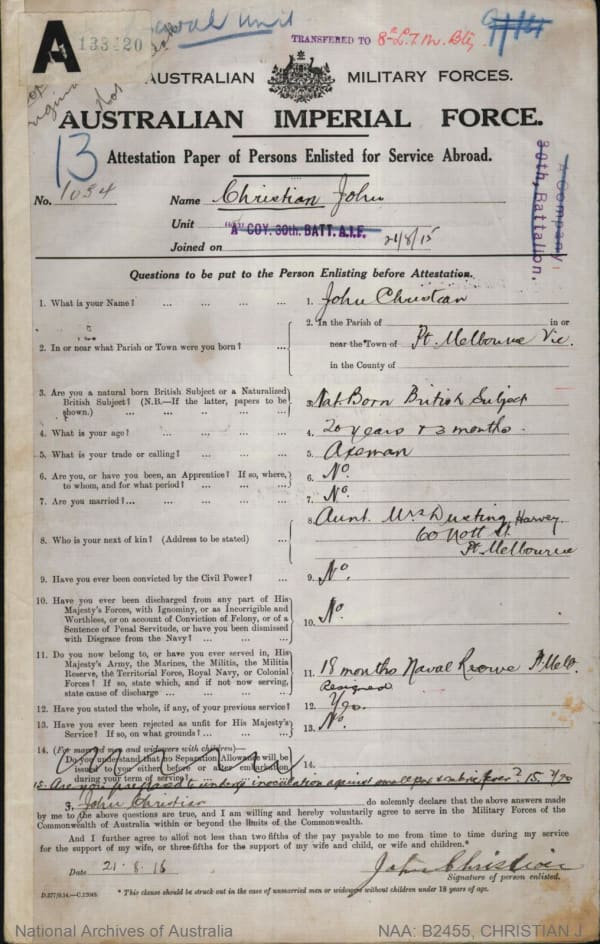 A 133420
Naval Unit
TRANSFERRED TO 8th L.T.M. Bty
AUSTRALIAN MILITARY FORCES.
AUSTRALIAN IMPERIAL FORCE.
13
Attestation Paper of Persons Enlisted for Service Abroad.
No. 1034 Name Christian John
Unit "A" COY. 30th. BATT. A.I.F.
Joined on 21/8/15
A Company,
30th, Battalion.
Questions to be put to the Person Enlisting before Attestation.
1. What is your Name? ... ... ... 1. John Christian
2. In or near what Parish or Town were you born? ... 2. In the Parish of in or
near the Town of Pt. Melbourne Vic.
in the County of
3. Are you a natural born British Subject or a Naturalized
British Subject? (N.B.—If the latter, papers to be
shown.) ... ... ... ... 3. Nat. Born British Subject
4. What is your age? ... ... ... 4. 20 years & 3 months.
5. What is your trade or calling? ... ... 5. Axeman
6. Are you, or have you been, an Apprentice? If so, where,
to whom, and for what period? ... ... ... 6. No.
7. Are you married?... ... ... ... 7. No.
8. Who is your next of kin? (Address to be stated) ... 8. Aunt. Mrs Dusting, Harvey.
60 Nott St.
Pt. Melbourne
9. Have you ever been convicted by the Civil Power? ... 9. No.
10. Have you ever been discharged from any part of His
Majesty's Forces, with Ignominy, or as Incorrigible and
Worthless, or on account of Conviction of Felony, or of a
Sentence of Penal Servitude, or have you been dismissed
with Disgrace from the Navy? ... ... ... 10. No.
11. Do you now belong to, or have you ever served in, His
Majesty's Army, the Marines, the Militia, the Militia
Reserve, the Territorial Force, Royal Navy, or Colonial
Forces? If so, state which, and if not now serving,
state cause of discharge ... ... ... ... 11. 18 months Naval Reserve Pt. Melb.
Resigned
12. Have you stated the whole, if any, of your previous service? 12. Yes.
13. Have you ever been rejected as unfit for His Majesty's
Service? If so, on what grounds? ... ... ... 13. No.
14. (For married men and widowers with children)—
Do you understand that no Separation Allowance will be
issued to you either before or after embarkation
during your term of service? 14.
15. Are you prepared to undergo inoculation against small pox & enteric fever? 15. Yes
I, John Christian do solemnly declare that the above answers made
by me to the above questions are true, and I am willing and hereby voluntarily agree to serve in the Military Forces of the
Commonwealth of Australia within or beyond the limits of the Commonwealth.
And I further agree to allot not less than two-fifths of the pay payable to me from time to time during my service
for the support of my wife, or three-fifths for the support of my wife and child, or wife and children.*
Date 21.8.15 John Christian
Signature of person enlisted.
D.377/9.14.—C.12049. * This clause should be struck out in the case of unmarried men or widowers without children under 18 years of age.
National Archives of Australia NAA: B2455, CHRISTIAN J